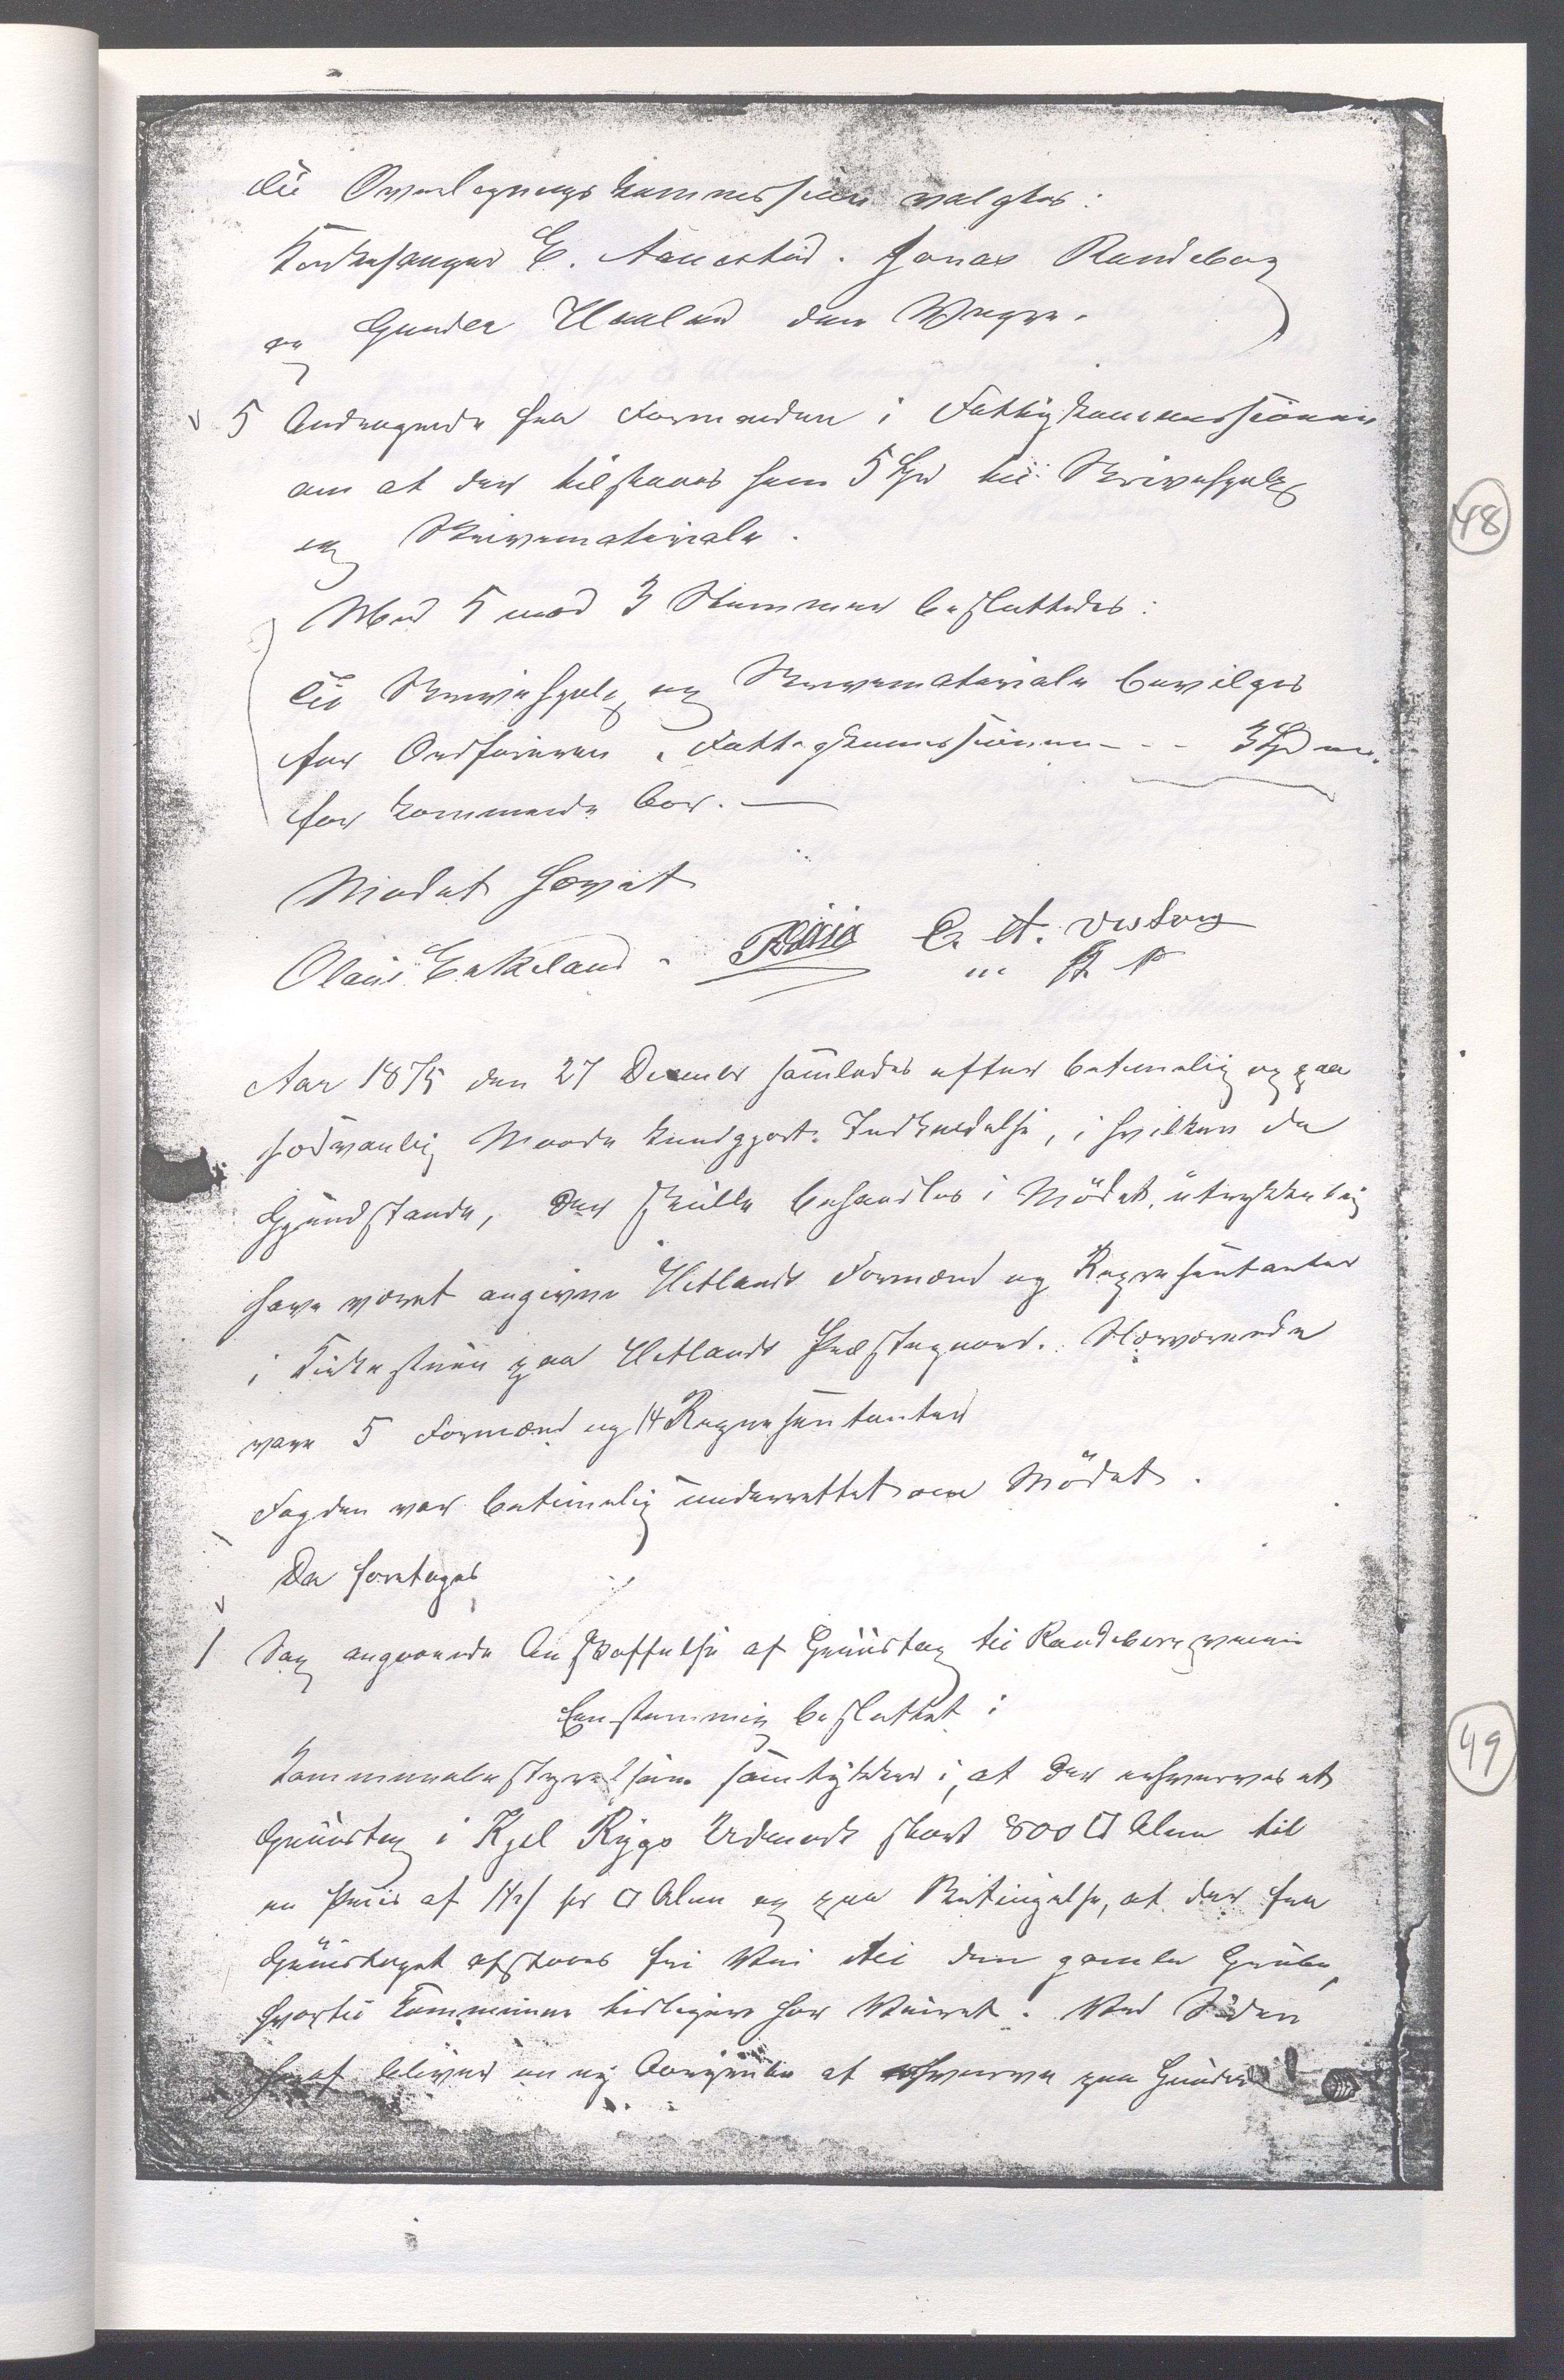 til Overlegningskommissionen valgtes:
Kirkesanger E. Aanestad. Jonas Randeberg
og Gunder Haaland den Yngre.
5 Andragende fra Formanden i Fattigkommissionen
om at der tilstaaes ham 5 Spd til Skrivehjælp
og Skrivematerialer.
Med 5 mod 3 Stemmer besluttedes:
Til Skrivehjælp og Skrivematerialer bevilges
for Ordføreren i Fattigkommissionen - - - 3 Spd
for kommende Aar.
48
Mødet hævet
Olaus Eskeland. E. A.
Aar 1875 den 27 December samledes efter betimelig og paa
sædvanlig Maade kundgjort Indkaldelse, i hvilken de
Gjenstande, der skulle behandles i Mødet, udtrykkelig
have været angivne Hetlands Formænd og Repræsentanter
i paa Hetlands Præstegaard. Nærværende
vare 5 Formænd og 14 Repræsentanter
Fogden var betimelig underrettet om Mødet.
Da foretoges
1 Sag angaaende Anskaffelse af Gruustag til Randebergveien
Eenstemmig besluttet:
Kommunebestyrelsen samtykker i, at der erhverves et
Gruustag i Kjel Rygs Udmark stort 800 □ Alen til
en Priis af 1½ s pr □ Alen og paa Betingelse, at der fra
Gruustaget afstaaes fri Vei til den gamle Grube,
hvortil Kommunen tidligere har Veiret. Ved Siden
heraf bliver en ny at erhverve paa
49